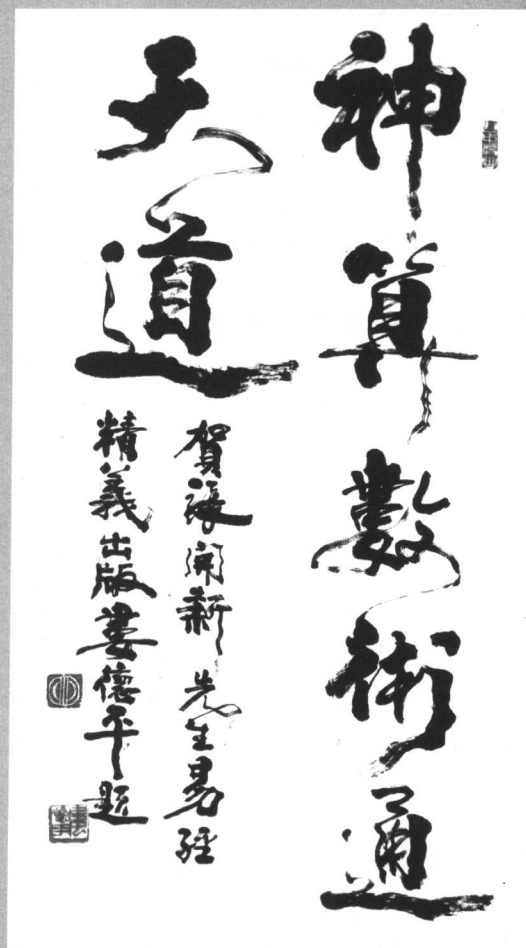 神算數術通
天道
賀張開新先生易經
精義出版婁德平題